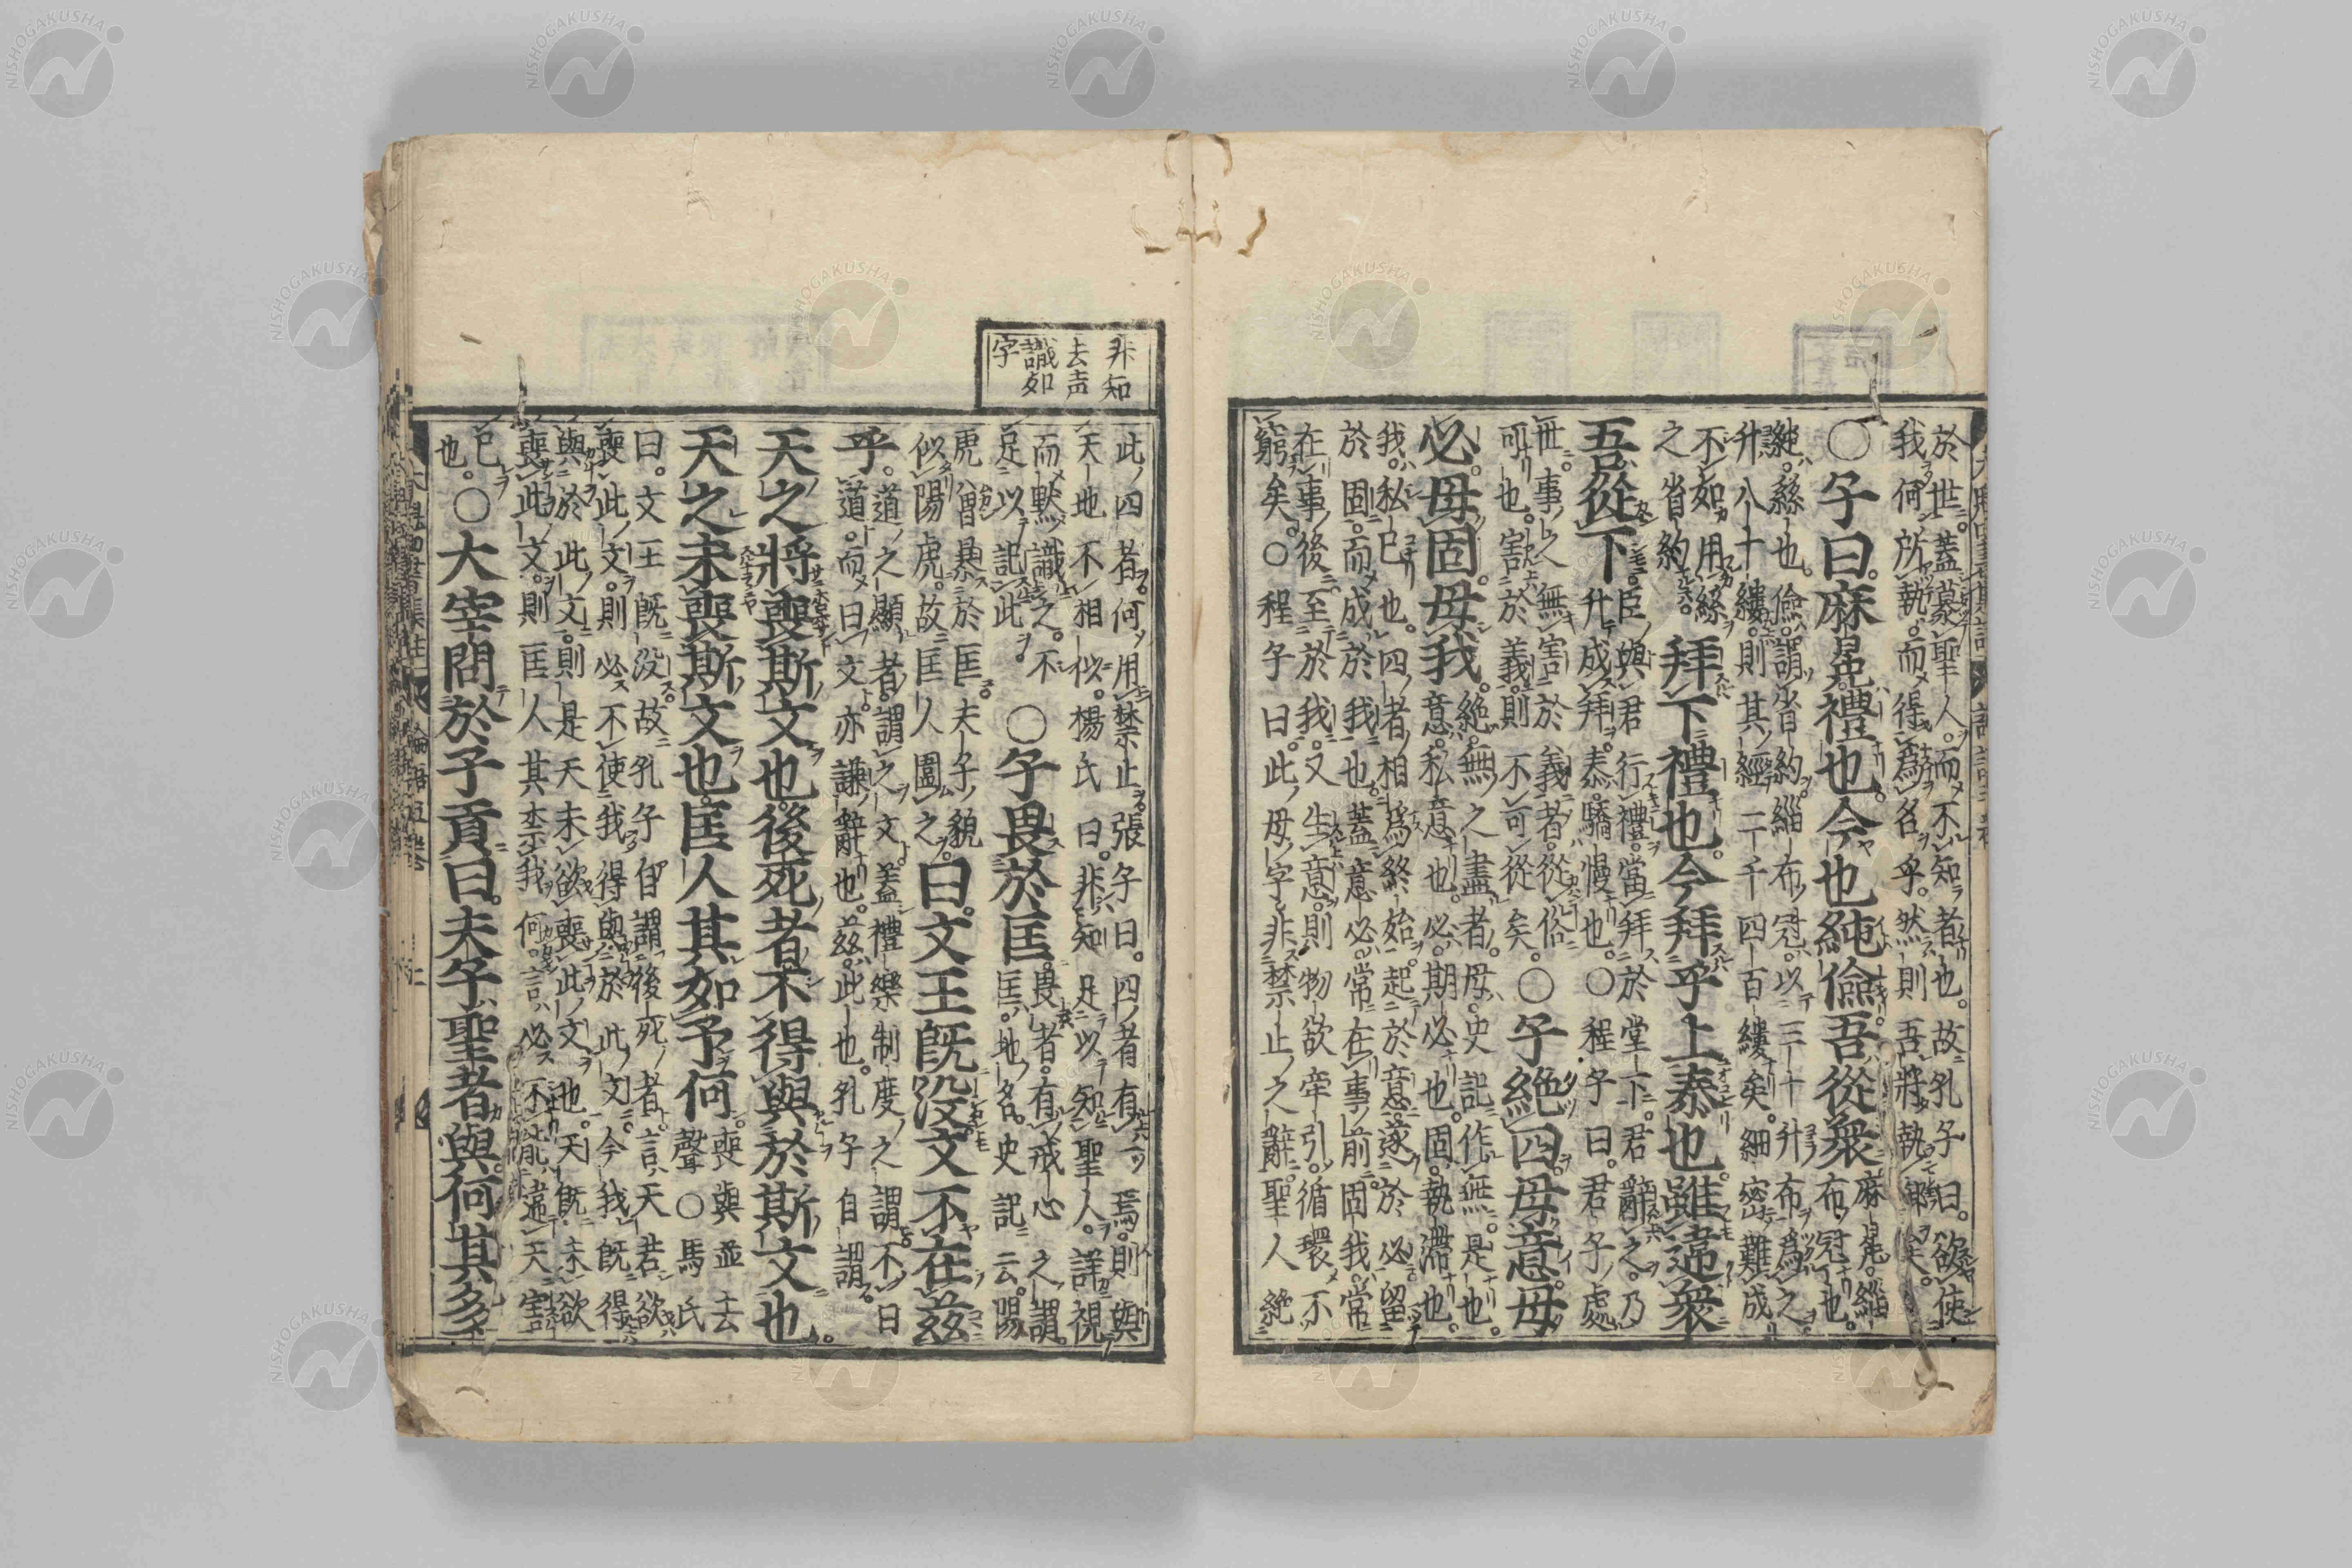 於世。蓋慕聖人。而不知者也。故孔子曰。欲使
我何所執。而得爲名乎。然則吾將執御矣。
○子曰。麻冕禮也。今也純儉。吾從衆
麻冕。緇
布冠也。
純。絲也。儉。謂省約。緇布冠。以三十升布爲之。
升八十縷。則其經二千四百縷矣。細密難成。
不如用絲
之省約。
拜下禮也。今拜乎上泰也。雖違衆
吾從下。
臣與君行禮。當拜於堂下。君辭之。乃
升成拜。泰。驕慢也。○程子曰。君子處
世。事之無害於義者。從俗
可也。害於義。則不可從矣。
○子絶四。毋意。毋
必。毋固。毋我。
絶。無之盡者。毋。史記作無。是也。
意。私意也。必。期必也。固。執滯也。
我。私己也。四者相爲終始。起於意。遂於必。留
於固。而成於我也。蓋意必。常在事前。固我。常
在事後。至於我。又生意。則物欲牽引。循環不
窮矣。○程子曰。此毋字。非禁止之辭。聖人絶
非知
去声
識如
字
此四者。何用禁止。張子曰。四者有一焉。則與
天地不相似。楊氏曰。非知足以知聖人。詳視
而默識之。不
足以記此。
○子畏於匡。
畏者。有戒心之謂。
匡。地名。史記云。陽
虎曾暴於匡。夫子貌
似陽虎。故匡人圍之。
曰。文王既没。文不在茲
乎。
道之顯者。謂之文。蓋禮樂制度之謂。不曰
道。而曰文。亦謙辭也。茲。此也。孔子自謂。
天之將喪斯文也。後死者不得與於斯文也。
天之未喪斯文也。匡人其如予何。
喪與並去
聲○馬氏
曰。文王既没。故孔子自謂後死者。言天若欲
喪此文。則必不使我得與於此文。今我既得
與於此文。則是天未欲喪此文也。天既未欲
喪此文。則匡人其柰我何。言必不能違天害
己
也。
○大宰問於子貢曰。夫子聖者與。何其多